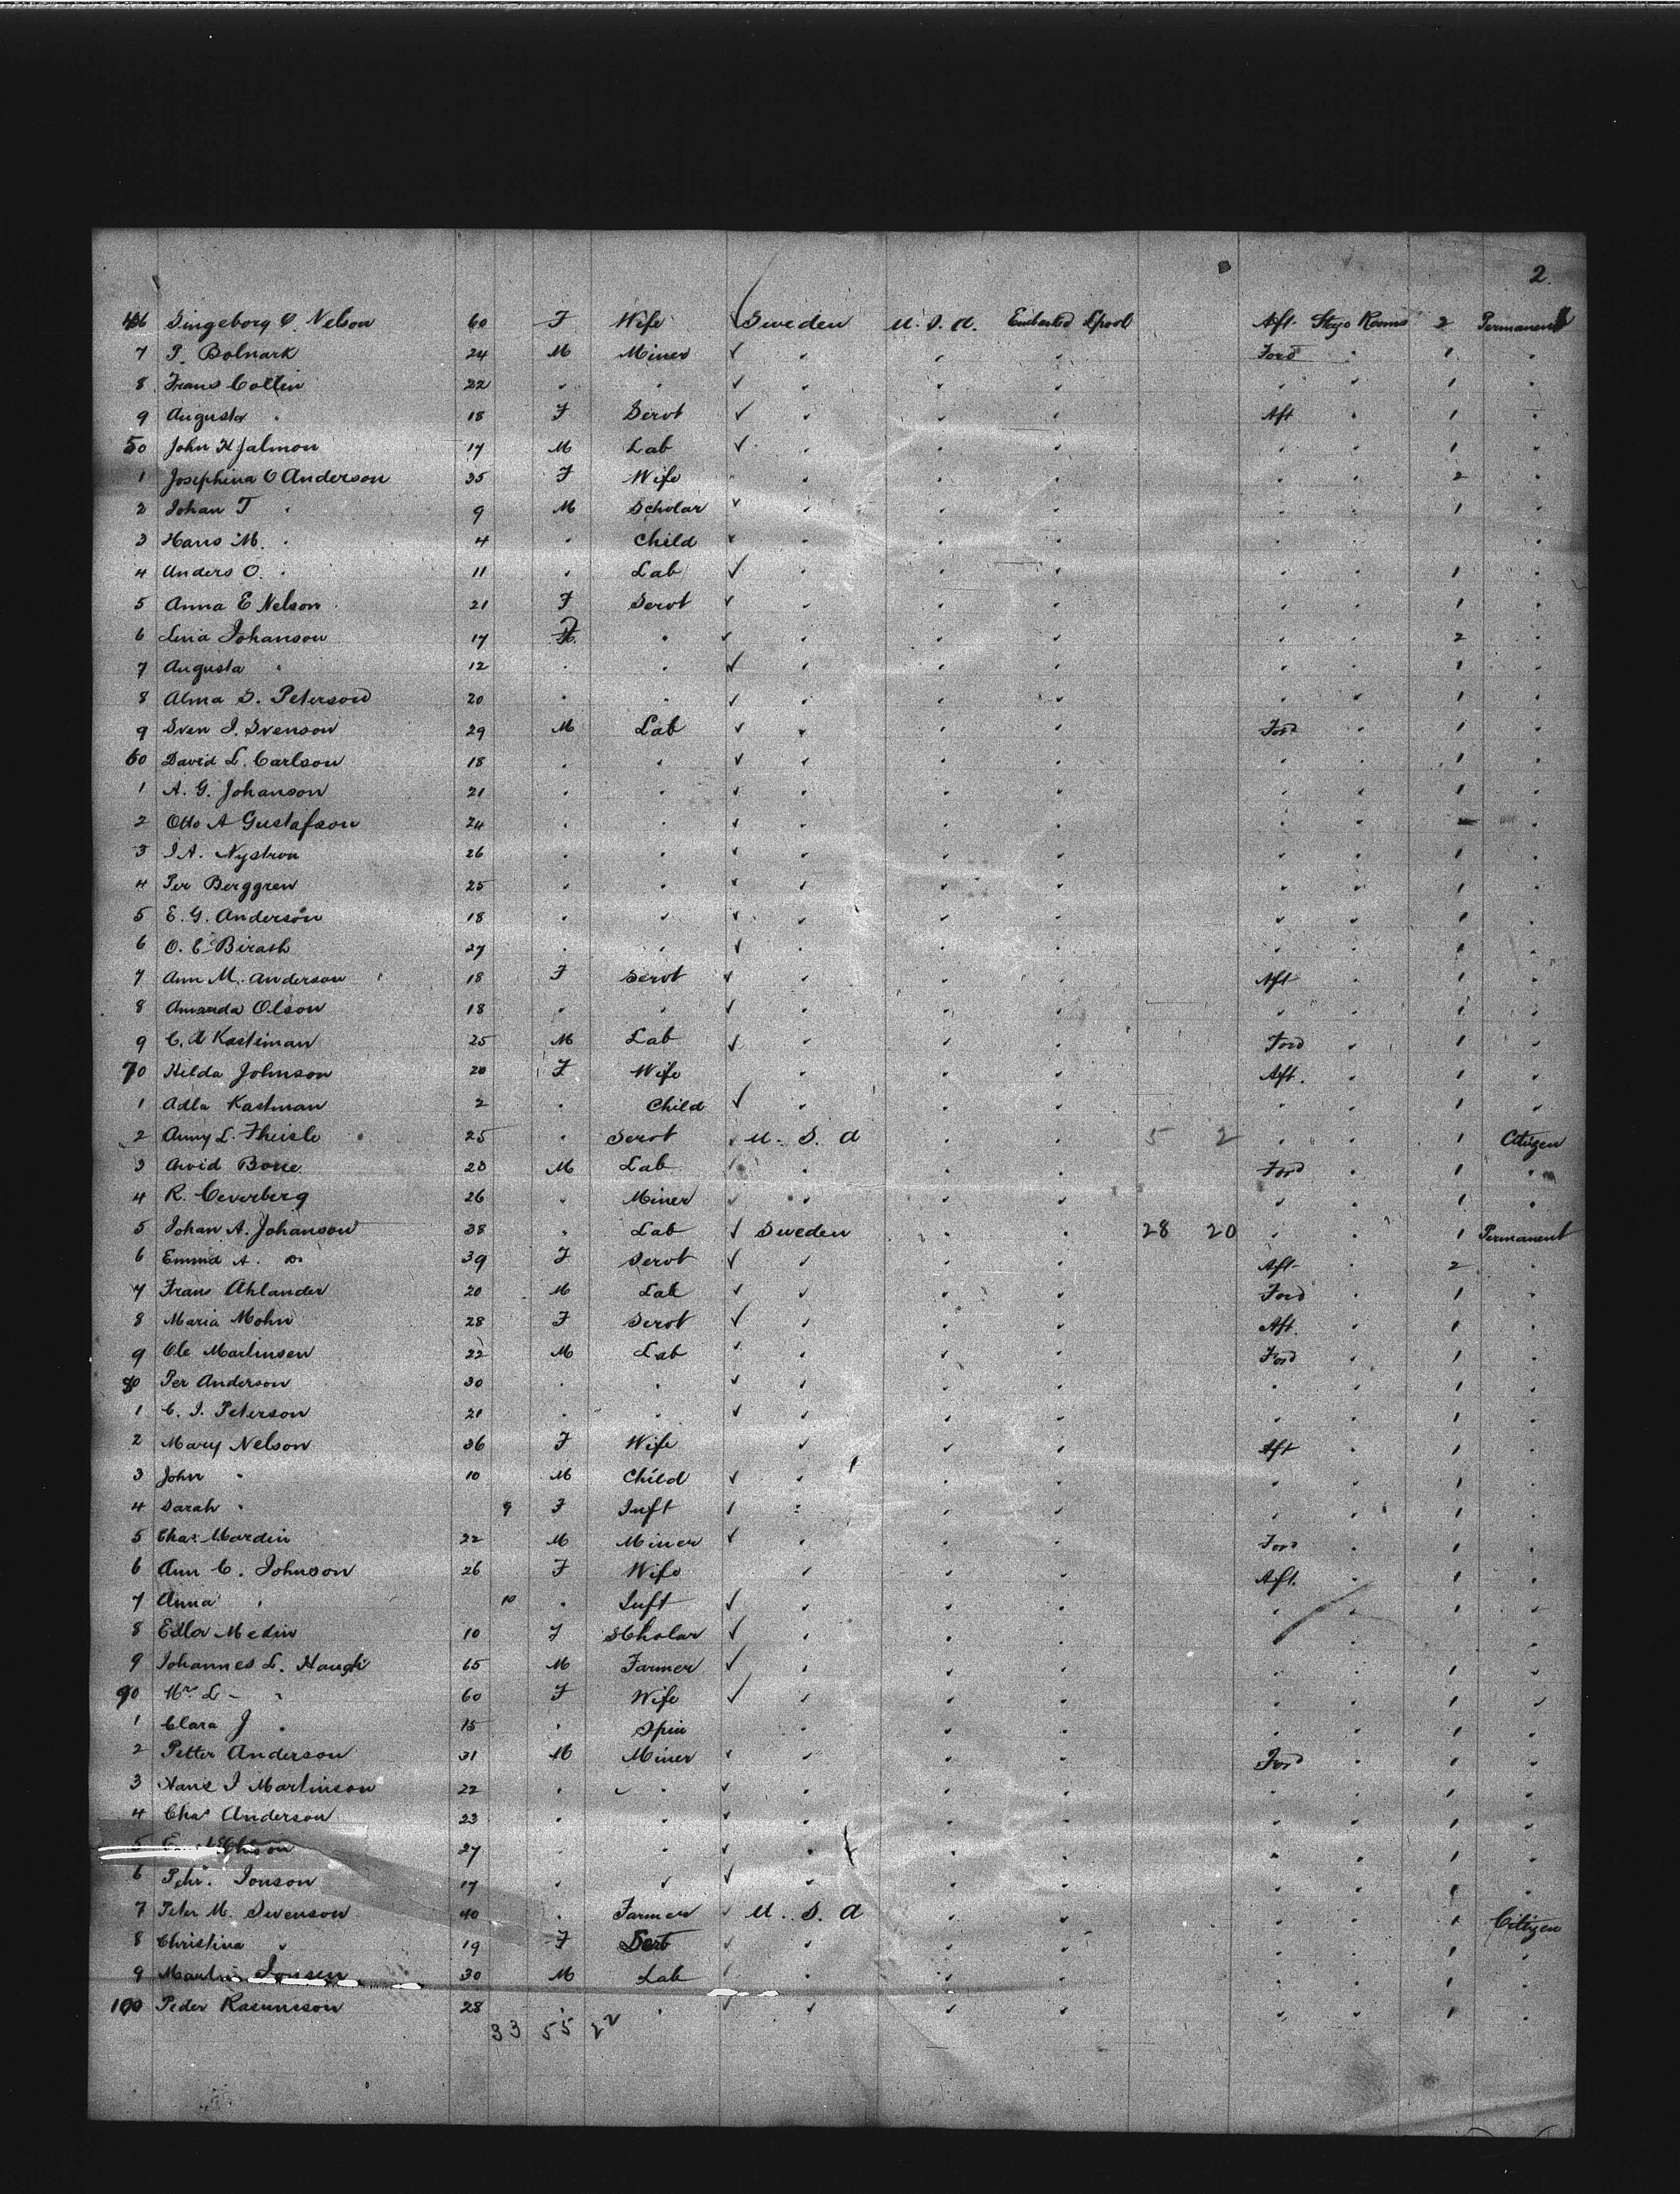 2
46 Singeborg C. Nelson 60 F Wife Sweden U.S.A. Embarked Lpool Aft Stge Rooms 2 Permanent
7 P. Bolnark 24 M Miner Ford 1
8 Frans Collin 22 1
9 Augusta " 18 F Servt Aft 1
50 John Hjalmon 17 M Lab 1
1 Josephina O Anderson 35 F Wife 2
2 Johan T " 9 M Scholar 1
3 Hans M. " 4 " Child
4 Anders O. " 11 " Lab 1
5 Anna E Nelson 21 F Servt 1
6 Lina Johanson 17 " 2
7 Augusta " 12 " " 1
8 Alma S. Peterson 20 " " 1
9 Sven J. Svenson 29 M Lab Ford 1
60 David L. Carlson 18 " " 1
1 A. G. Johanson 21 " " 1
2 Otto A Gustafson 24 " "
3 J A. Nystron 26 " " 1
4 Per Berggren 25 " " 1
5 E. G. Anderson 18 " " 1
6 O. E. Birath 27 " " 1
7 Ann M. Anderson 18 F Servt Aft 1
8 Amanda Olson 18 " " 1
9 C. A Kastiman 25 M Lab Ford 1
70 Hilda Johnson 20 F Wife Aft. 1
1 Adla Kastman 2 " Child 1
2 Anny L. Theisle 25 " Servt U. S. A 5 2 1 Citizen
3 Arvid Borre 20 M Lab Ford 1
4 R. Ceverberg 26 " Miner 1
5 Johan A. Johanson 38 " Lab Sweden 28 20 1 Permanent
6 Emma A. Do 39 F Servt Aft 2
7 Frans Ahlander 20 M Lab Ford 1
8 Maria Mohn 28 F Servt Aft. 1
9 Ole Martinsen 22 M Lab Ford 1
80 Per Anderson 30 " " 1
1 C. J. Peterson 21 " " 1
2 Mary Nelson 36 F Wife Aft 1
3 John " 10 M Child 1
4 Sarah " 9 F Inft 1
5 Chas Mardin 22 M Miner Ford 1
6 Ann C. Johnson 26 F Wife Aft. 1
7 Anna " 10 " Inft 1
8 Edla Medin 10 F Scholar
9 Johannes L. Haugh 65 M Farmer 1
90 Mrs L - " 60 F Wife 1
1 Clara J " 15 " Spin 1
2 Petter Anderson 31 M Miner Ford 1
3 Hans J Martinson 22 " " 1
4 Chas Anderson 23 " " 1
5 27 " " 1
6 Pehr. Jonson 17 " " 1
7 Peter M. Swenson 40 " Farmer U. S. A 1 Citizen
8 Christina " 19 F Servt 1
9 Martin Jonsen 30 M Lab 1
100 Peder Rasmusson 28 " " 1
33 55 22